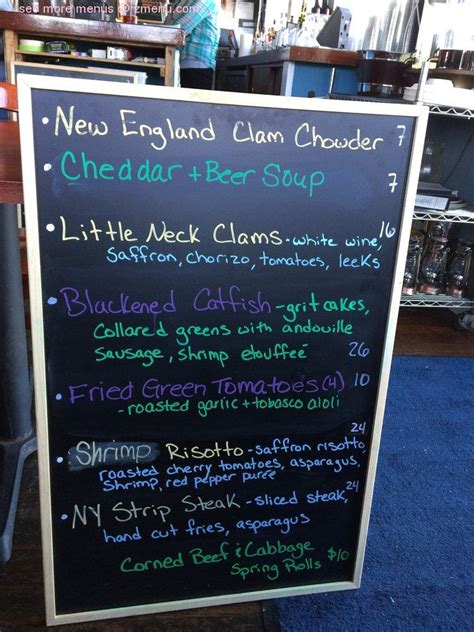 see more menus @ zmenu.com
• New England Clam Chowder 7
• Cheddar + Beer Soup 7
• Little Neck Clams - white wine, 16
Saffron, chorizo, tomatoes, leeks
• Blackened Catfish - grit cakes,
Collared greens with andouille
Sausage, shrimp etouffee 26
• Fried Green Tomatoes (4) 10
- roasted garlic + tobasco aioli
24
• Shrimp Risotto - saffron risotto
roasted cherry tomatoes, asparagus,
Shrimp, red pepper purée
• NY Strip Steak - sliced steak, 24
hand cut fries, asparagus
Corned Beef & Cabbage
Spring Rolls $10